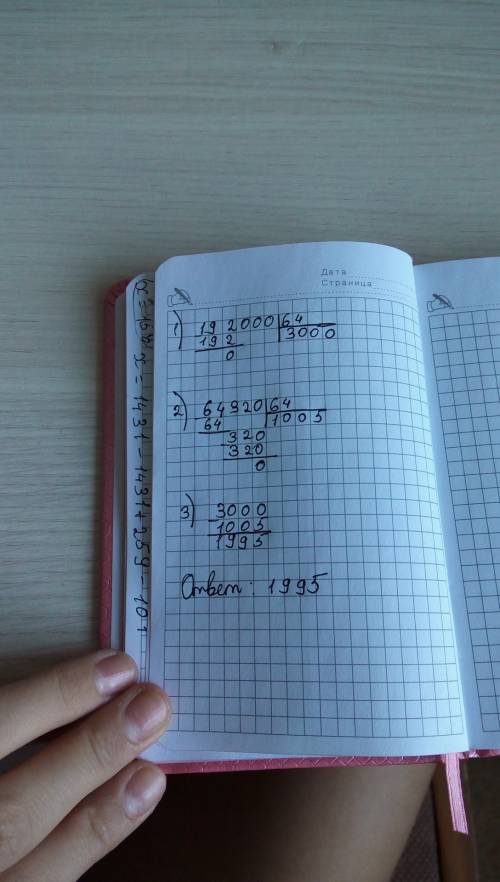 Дата
Страница
1) 192000 | 64
192 | 3000
0
2) 64320 | 64
64 | 1005
320
320
0
3) 3000
1005
1995
Ответ: 1995
x = 1431 = 1431 + 259 - 101